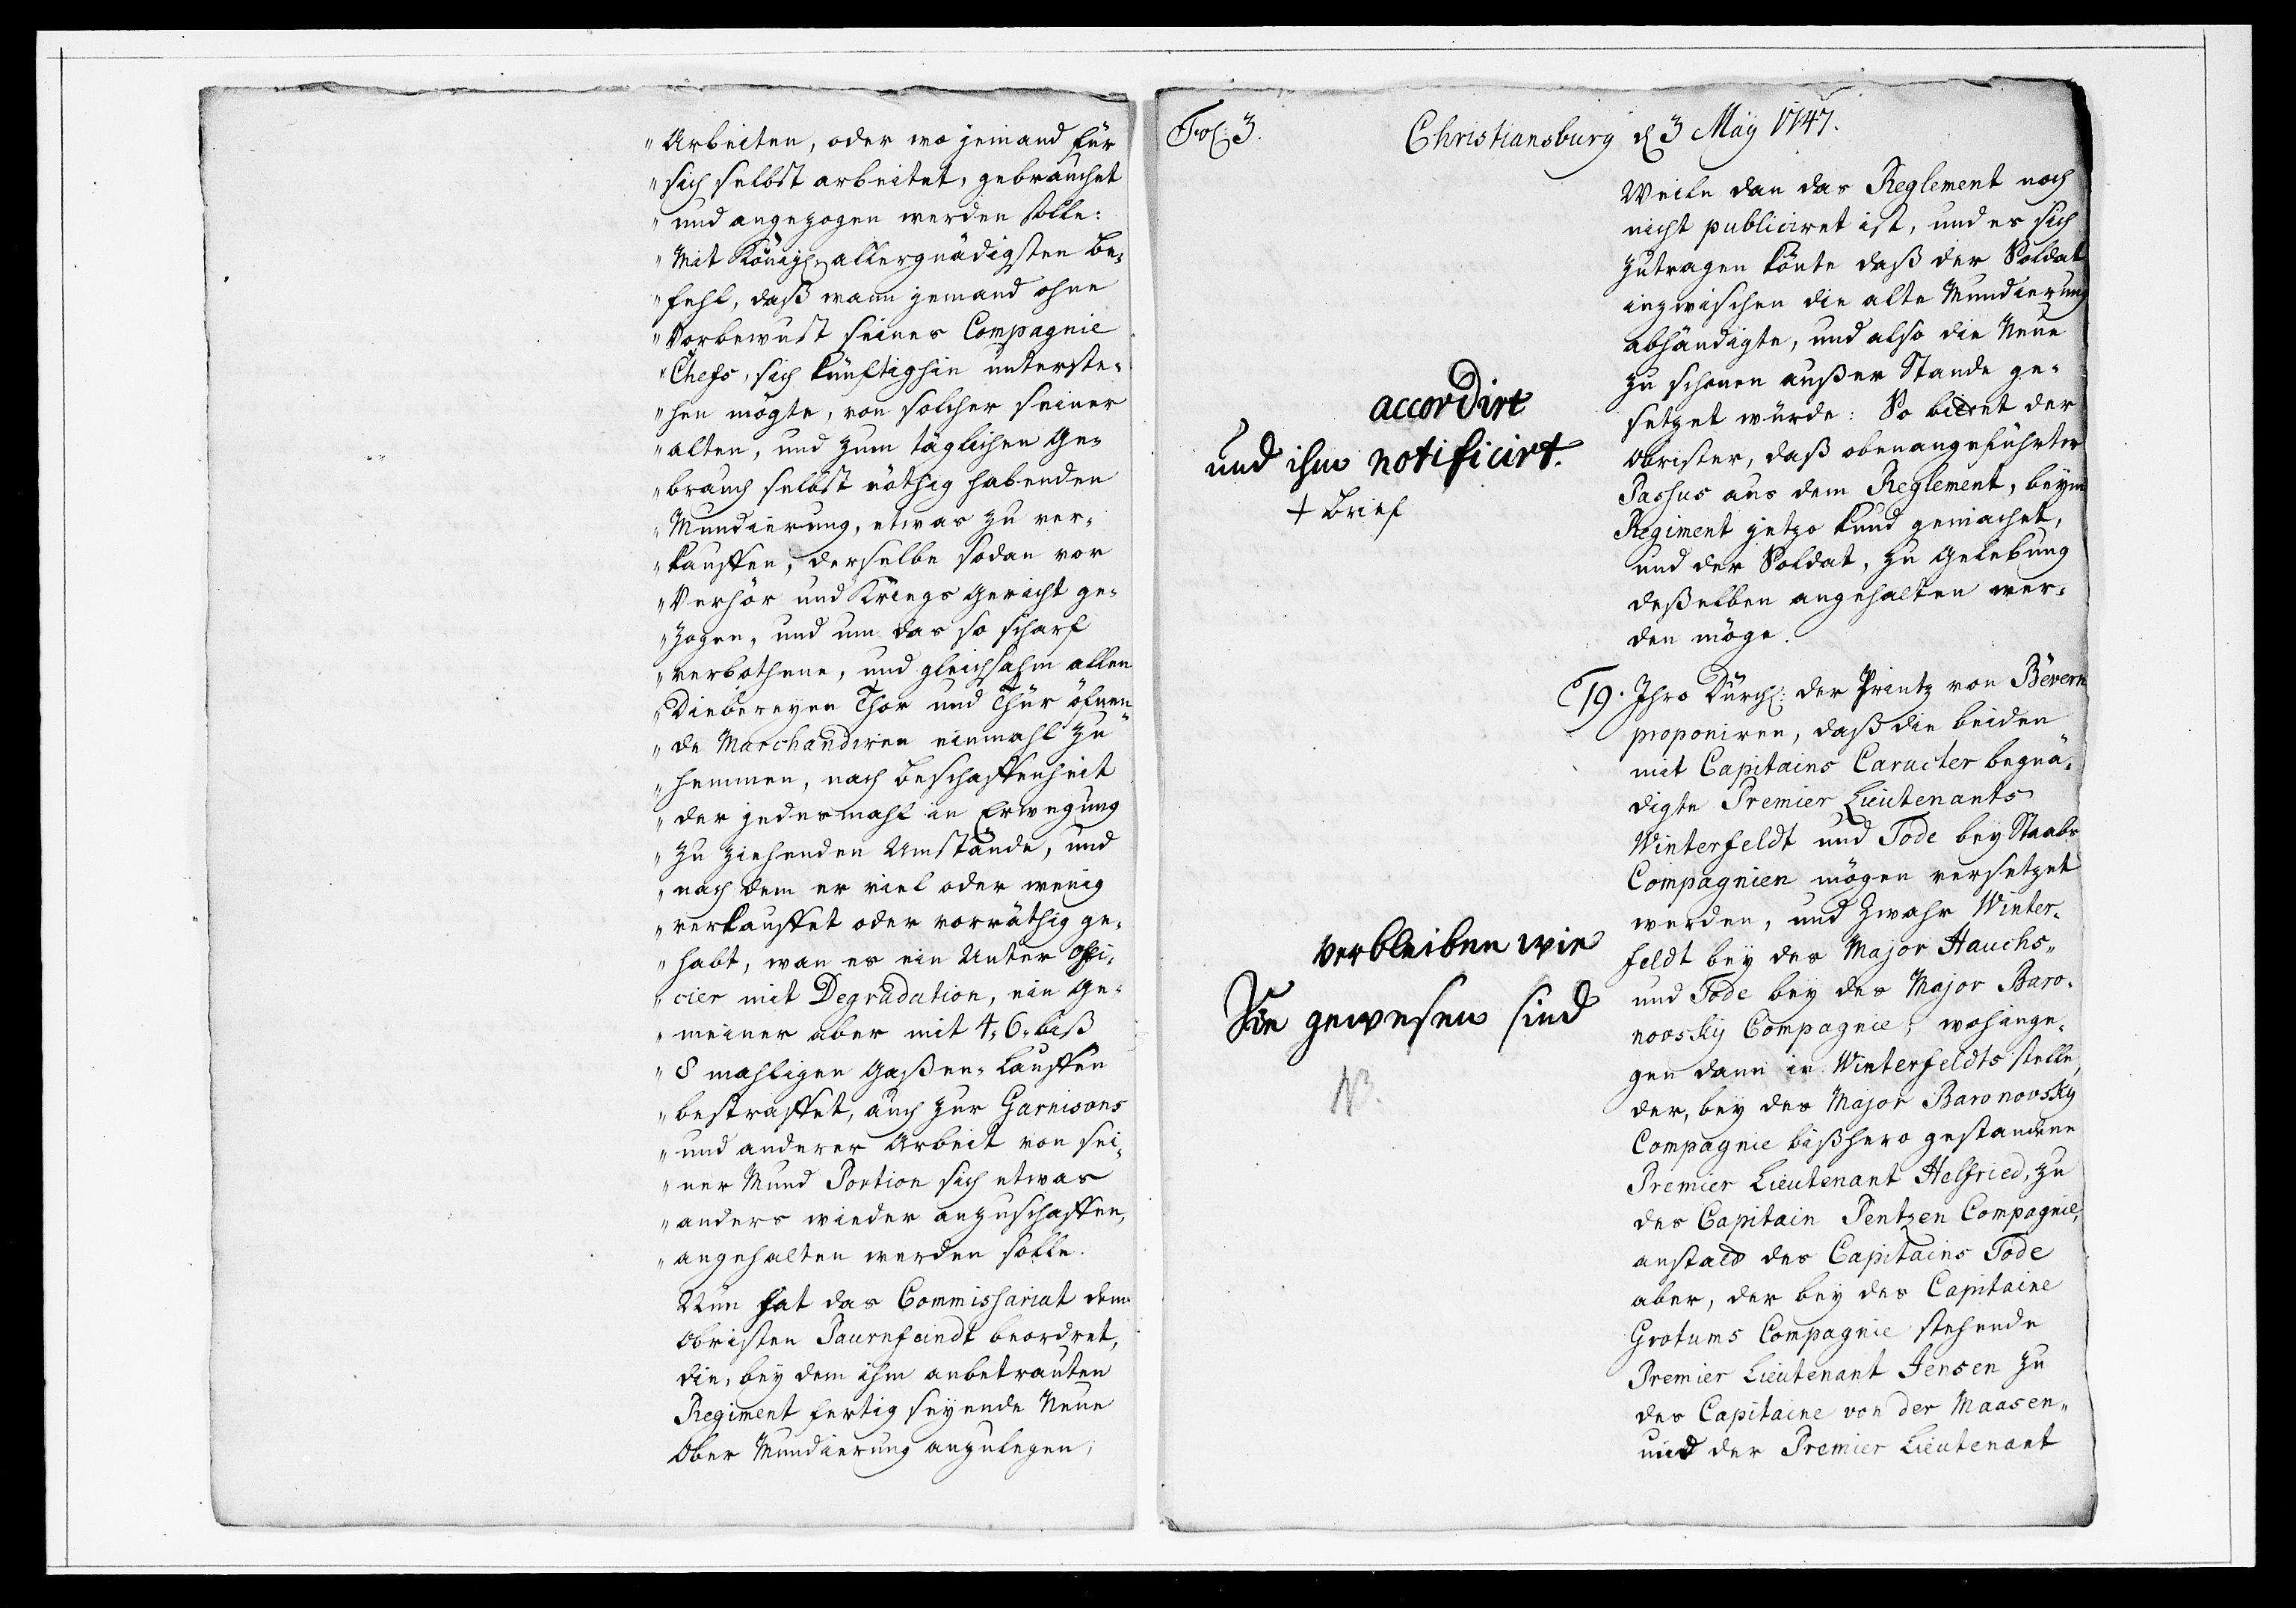 „ Arbeiten, oder wo jemand für
„ sich selbst arbeitet, gebrauchet
„ und angezogen werden solle:
„ Mit Königl: allergnädigsten Be-
„ fehl, daß wann jemand ohne
„ Vorbewust seines Compagnie
„ Chefs, sich künftighin unterste-
„ hen mögte, von solcher seiner
„ alten, und zum täglichen Ge-
„ brauch selbst nöthig habenden
„ Mundierung, etwas zu ver-
„ kauffen, derselbe sodan vor
„ Verhör und Kriegs Gericht ge-
„ zogen, und um das so scharf
„ verbothene, und gleichsahm allen
„ Diebereyen Thor und Thür öfnen-
„ de Marchandiren einmahl zu
„ hemmen, nach Beschaffenheit
„ der jedesmahl in Erwegung
„ zu ziehenden Umstände, und
„ nach dem er viel oder wenig
„ verkauffet oder vorräthig ge-
„ habt, wan es ein Unter Offi-
„ cier mit Degradation, ein Ge-
„ meiner aber mit 4, 6, biß
„ 8 mahligen Gaßen-Lauffen
„ bestraffet, auch zur Garnisons
„ und anderer Arbeit von sei-
„ ner Mund Portion sich etwas
„ anders wieder anzuschaffen,
„ angehalten werden solle.
Nun hat das Commissariat dem
Obristen Paurnfeindt beordret,
die, bey dem ihm anbetrauten
Regiment fertig seyende Neue
Ober Mundierung anzulegen,
Fol: 3.
Christiansburg d 3 May 1747.
Weiln dan das Reglement noch
nicht publiciret ist, und es sich
zutragen könte daß der Soldat
inzwischen die alte Mundierung
abhändigte, und also die Neue
zu schonen außer Stande ge-
setzet würde: So bittet der
Obrister, daß obenangeführter
Passus aus dem Reglement, beym
Regiment jetzo kund gemachet,
und der Soldat, zu Gelebung
deßelben angehalten wer-
den möge.
accordirt
und ihm notificirt.
+ Brief
19. Ihro Durchl: der Printz von Bevern
proponiren, daß die beiden
mit Capitains Caracter begnä-
digte Premier Lieutenants
Winterfeldt und Tode bey Staabs
Compagnien mögen versetzet
werden, und zwahr Winter-
feldt bey des Major Hauchs„
und Tode bey des Major Baro-
novsky Compagnie; wohinge-
gen dann in Winterfeldts stelle,
der, bey des Major Baronovsky
Compagnie bißhero gestandene
Premier Lieutenant Helfried, zu
des Capitain Pentzen Compagnie,
anstatt des Capitains Tode
aber, der bey des Capitaine
Grotums Compagnie stehende
Premier Lieutenant Jensen zu
des Capitaine von der Maasen„
und der Premier Lieutenant
verbleiben wie
Sie gewesen sind
NB.